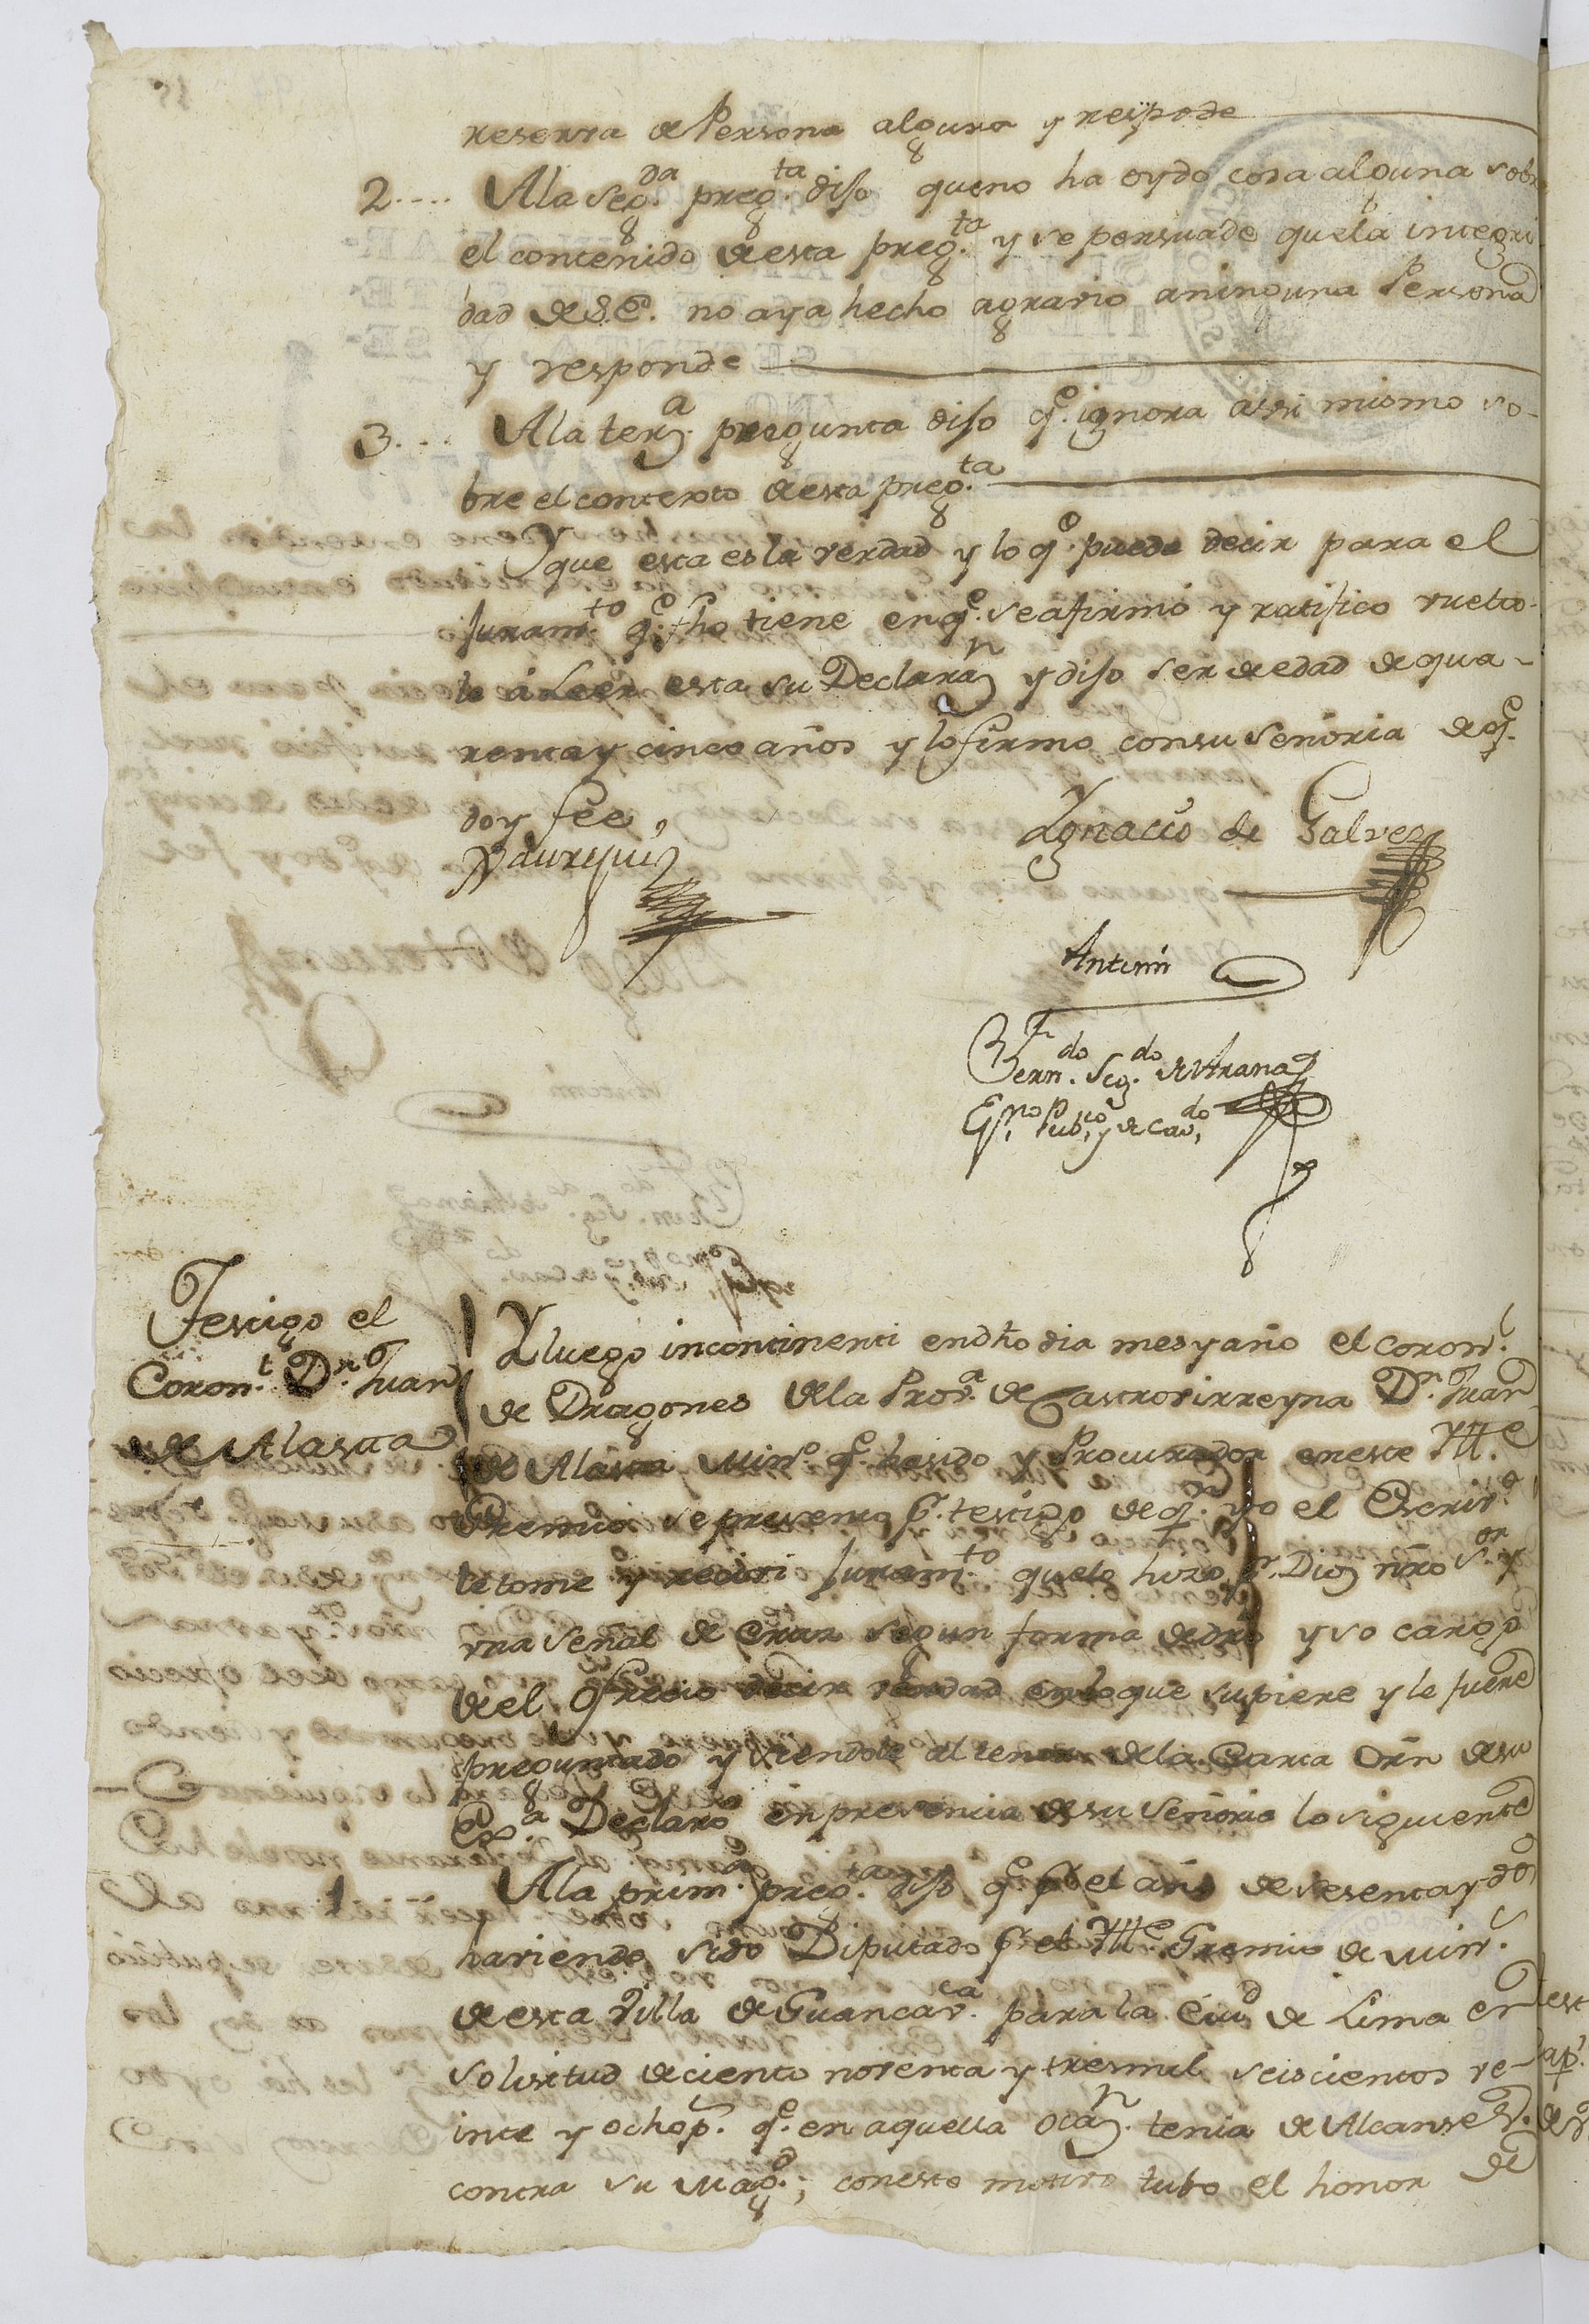 reserva de Persona alguna y respode
2.... A la seg.da preg.ta dijo que no ha oydo cosa alguna sobre
el contenido de esta preg.ta y se persuade que la integri-
dad de S.E. no aya hecho agravio a ninguna Persona
y responde
3... A la tera. pregunta dijo q.e ignora assi mismo so-
bre el contexto de esta preg.ta
Y que esta es la verdad y lo q.e puede decir para el
Juram.to q.e fho tiene en q.e se afirmó y ratifico vuelto-
le á Leer esta su Declaran y dijo ser de edad de qua-
renta y cinco años y lo firmo con su Señoria de q.e
doy fee,
Ygnacio de Galvez
Jaurequi
Antemi
Bern.do Seg.do de Arana
Es.no Pub.co y de Cav.do
Testigo el
Coron.l Dn. Juan
de Alasta
Y luego incontinenti en dho dia mes y año el Coron.l
de Dragones de la Prov.a de Castrovirreyna Dn. Juan
de Alasta Min.o q.e ha sido y Procurador en este Ill.e
Gremio se presento p.r testigo de q.n yo el Escriv.o
le tome y recivi Juram.to que lo hizo p.r Dios nro S.or y
vna señal de Cruz segun forma de dro y so cargo
de el Ofrecio decir verdad en lo que supiere y le fuere
preguntado y siendole al tenor de la Carta Orn de su
Ex.a Declaró en presencia de su Señoria lo siguiente
1 A la prim.a preg.ta dijo q.e p.r el año de sesenta y dos
haviendo sido Diputado p.r el Ill.e Gremio de Min.s
de esta Villa de Guancav.ca para la Ciud de Lima en
solisitud de ciento noventa y tres mil seiscientos ve-
inte y ocho p.s q.e en aquella Ocan. tenia de Alcanse
contra su Mag.d; con este motivo tubo el honor de